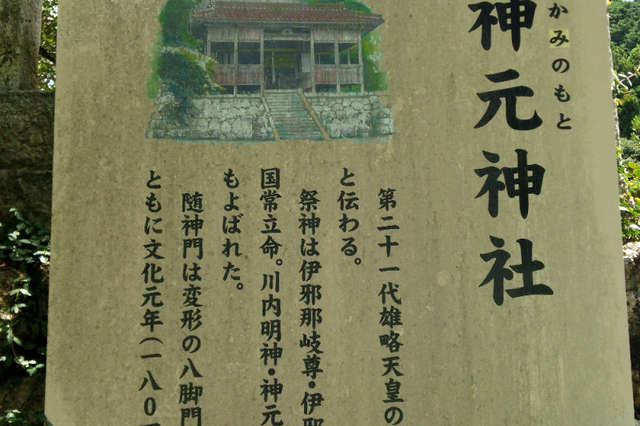 かみのもと
神元神社
第二十一代雄略天皇の
と伝わる。
祭神は伊邪那岐尊・伊邪
国常立命。川内明神・神元
もよばれた。
随神門は変形の八脚門
ともに文化元年(一八〇